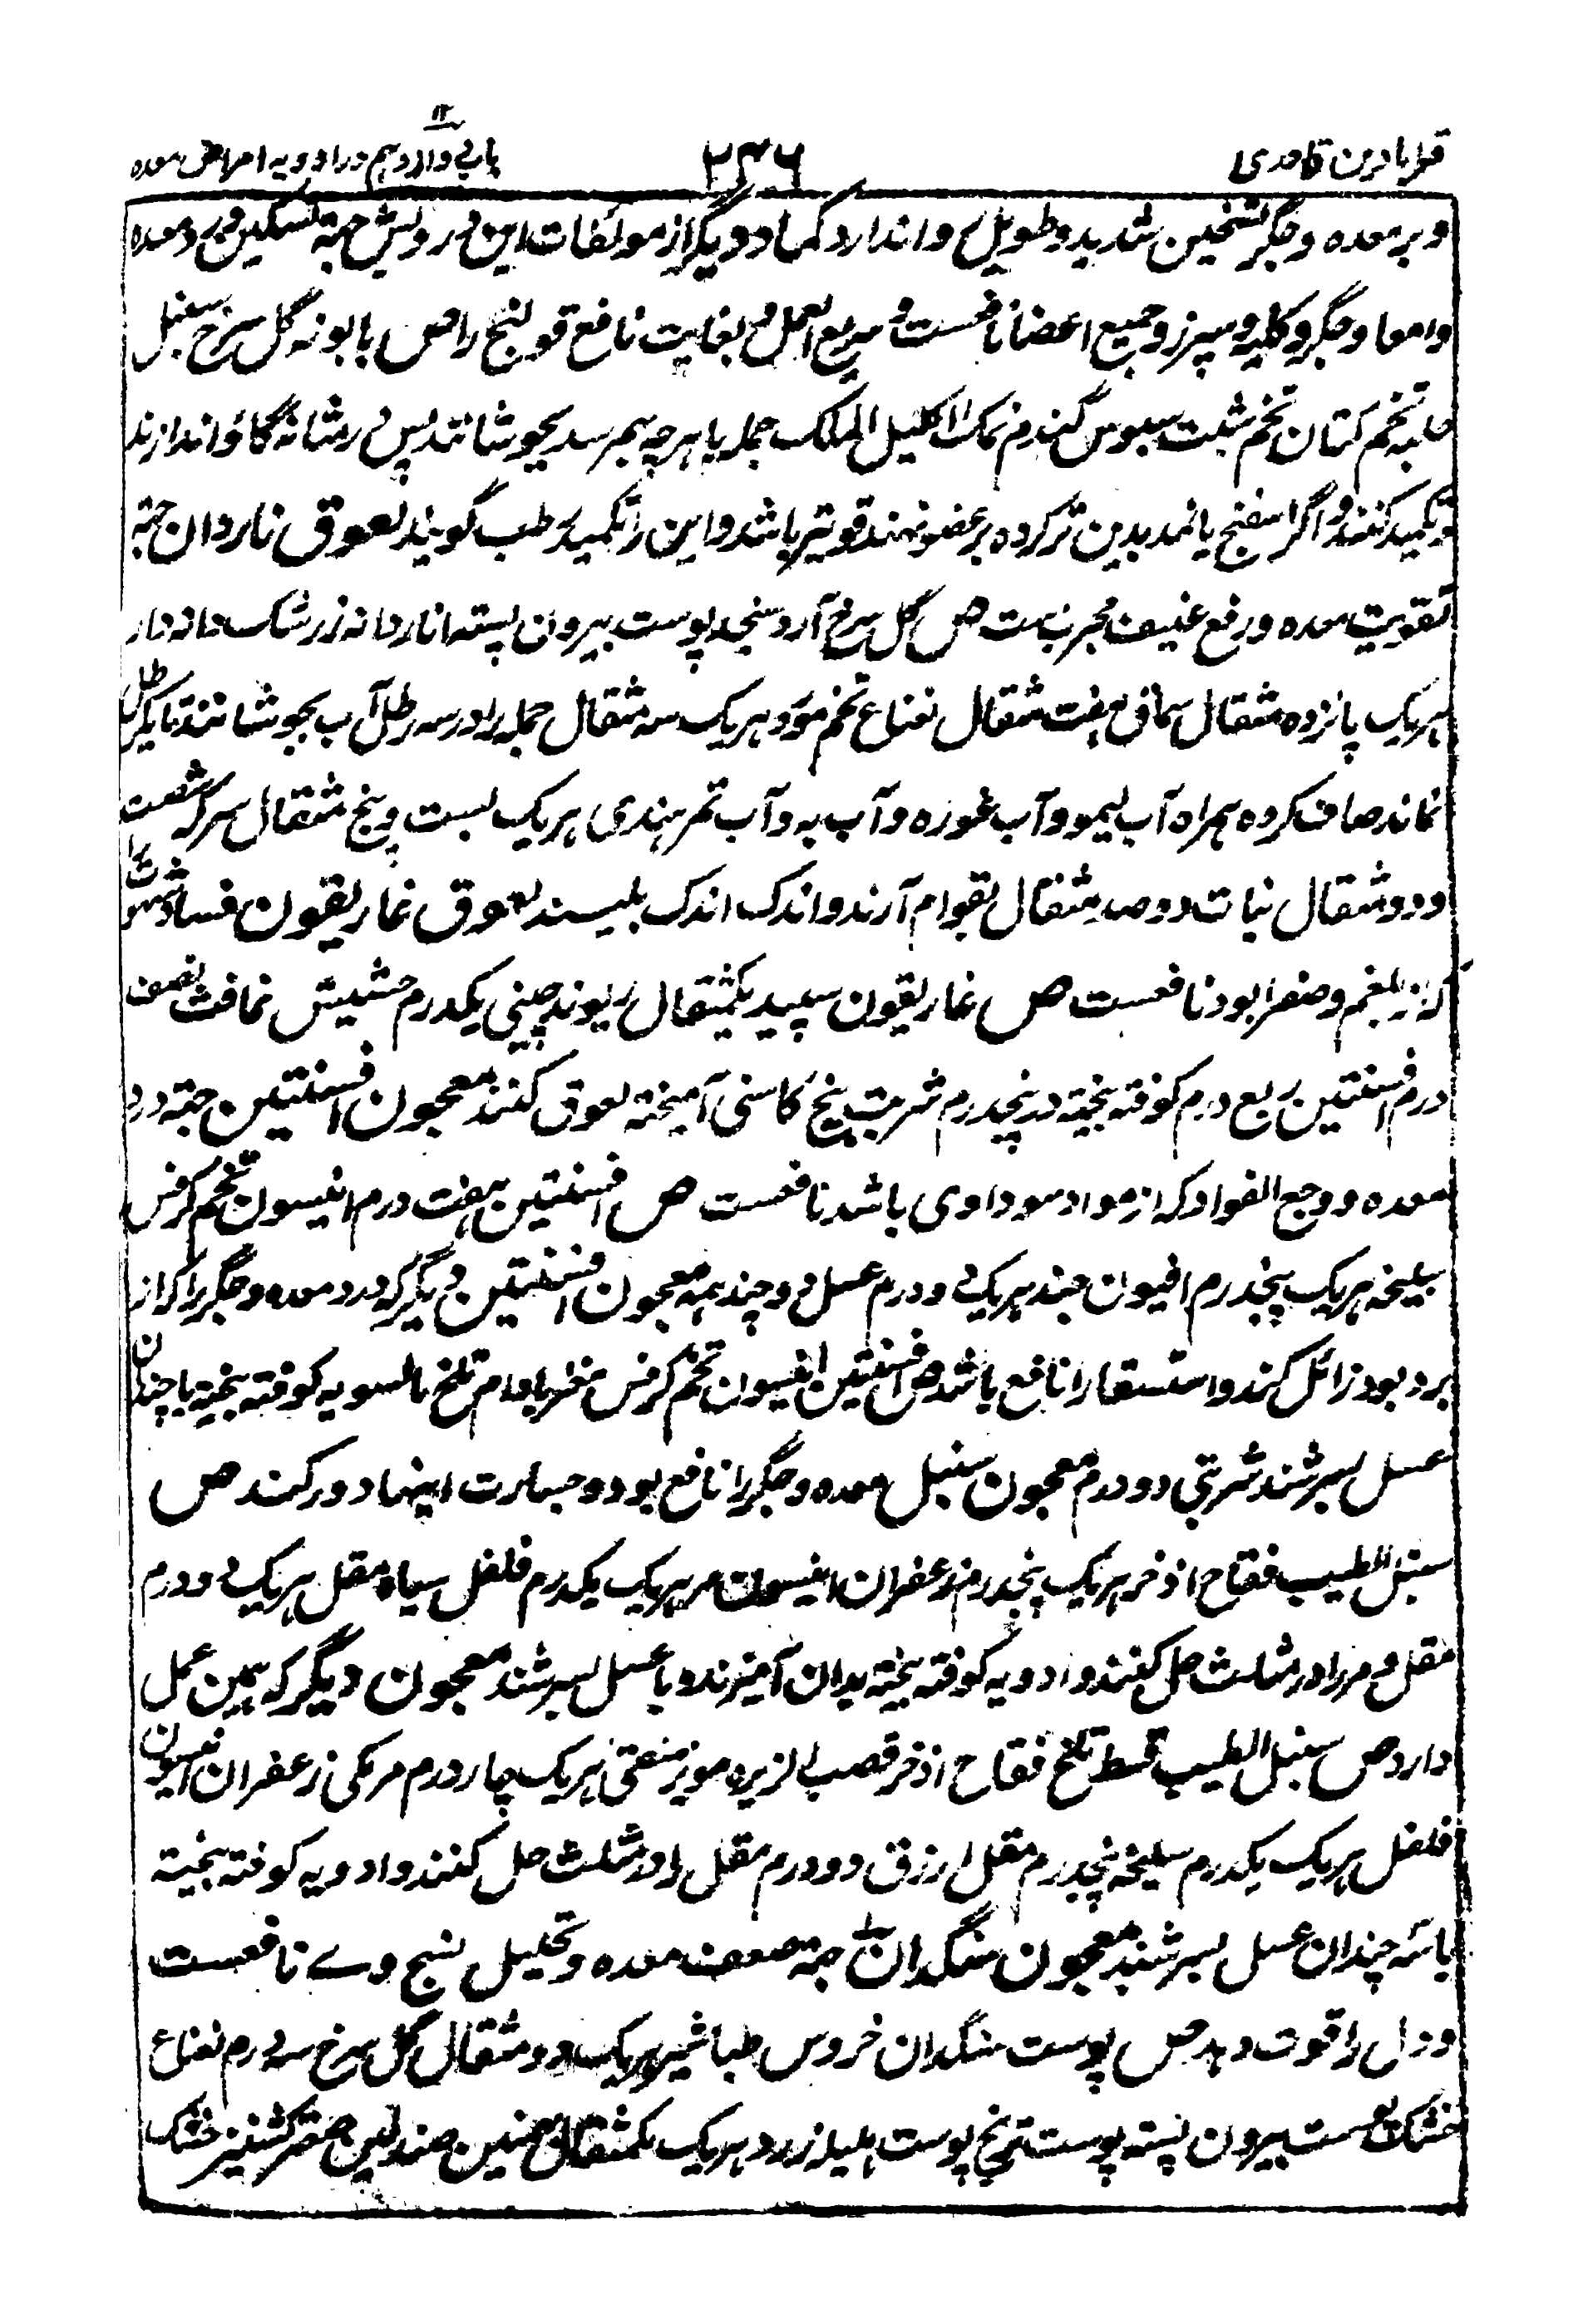 قرابادین قادری
۲۳۶
باب دوازدهم در ادویه امراض معده
۱۲
و بر معده و جگر تسخین شدید و طویل و اندارد کماد دیگر از مولفات این درویش جهة تسکین درد معده
و امعا و جگر و کلیه و سپرز و جمیع اعضا نافعست و سریع العمل و بغایت نافع قولنج را ص بابونه گل سرخ سنبل
حلبه تخم کتان تخم شبت سبوس گندم نمک اکلیل الملک جمله یا هر چه بهم رسد بجوشانند پس در مثانه گاو اندازند
و تکمید کنند و اگر اسفنج یا نمد بدین تر کرده بر عضو نهند قویتر باشد و این را تکمید رطب گویند لعوق ناردان جهة
تقویت معده و رفع غثیان مجربست ص گل سرخ آرد سنجد پوست بیرون پسته اناردانه زرشک دانه دار
هر یک پانزده مثقال سماق هفت مثقال نعناع تخم مورد هر یک سه مثقال جمله را در سه رطل آب بجوشانند تا یک رطل
نماند صاف کرده همراه آب لیمو و آب غوره و آب به و آب تمر هندی هر یک بست و پنج مثقال سرکه شصت
و دو مثقال نبات دو صد مثقال بقوام آرند و اندک اندک بلیسند لعوق غاریقون فساد شهوت را
که از بلغم و صفرا بود نافعست ص غاریقون سپید یکمثقال ریوند چینی یکدرم حشیش غافث نصف
درم افسنتین ربع درم کوفته بیخته در پنجدرم شربت بیخ کاسنی آمیخته لعوق کنند معجون افسنتین جهة درد
معده و وجع الفواد که از مواد سوداوی باشد نافعست ص افسنتین هفت درم انیسون تخم کرفس
سلیخه هر یک پنجدرم افیون جند هر یک دو درم عسل دو چند همه معجون افسنتین دیگر که درد معده و جگر را که از
برد بود زائل کند و استسقا را نافع باشد ص افسنتین انیسون تخم کرفس مغز بادام تلخ بالسویه کوفته بیخته با چندان
عسل بسرشند شربتی دو درم معجون سنبل معده و جگر را نافع بود و جسارت اینها دور کند ص
سنبل الطیب فقاح اذخر هر یک پنجدرم زعفران انیسون مر هر یک یکدرم فلفل سیاه مقل هر یک دو درم
مقل و مر را در مثلث حل کنند و ادویه کوفته بیخته بدان آمیزند و با عسل بسرشند معجون دیگر که همین عمل
دارد ص سنبل الطیب قسط تلخ فقاح اذخر قصب الزریره مویز منقی هر یک چهار درم مر مکی زعفران انیسون
فلفل هر یک یکدرم سلیخه پنجدرم مقل ازرق دو درم مقل را در مثلث حل کنند و ادویه کوفته بیخته
با سه چندان عسل بسرشند معجون سنگدان جهة ضعف معده و تحلیل نسج وے نافعست
و دل را قوت دهد ص پوست سنگدان خروس طباشیر هر یک دو مثقال گل سرخ سه درم نعناع
خشک پوست بیرون پسته پوست ترنج پوست هلیله زرد هر یک یکمثقال بهمنین صندلین صعتر کشنیز خشک